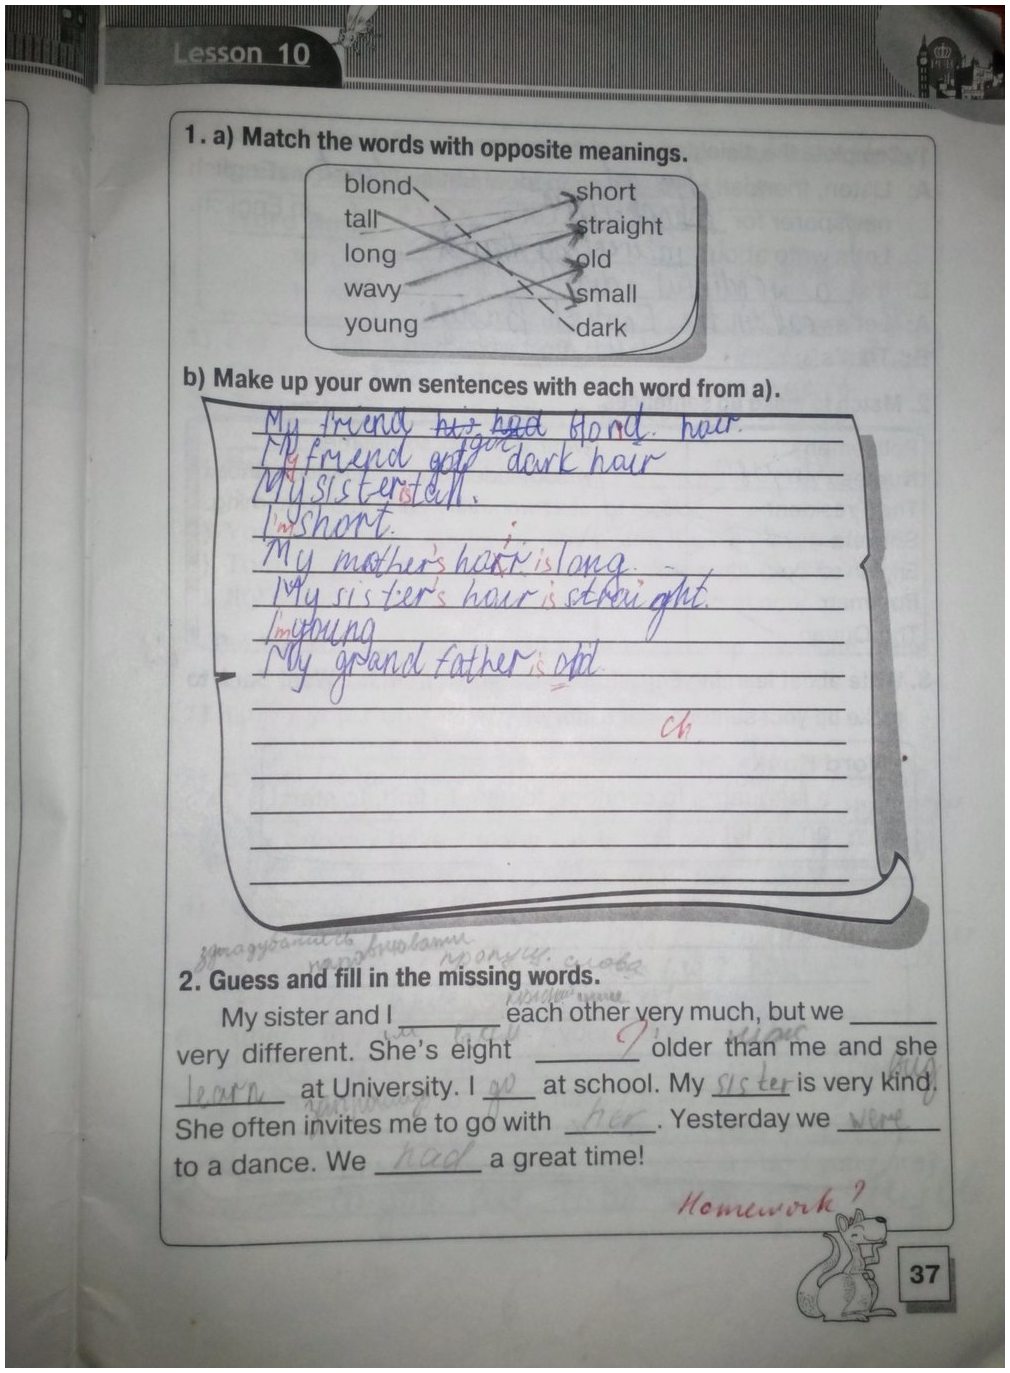 Lesson 10
1. a) Match the words with opposite meanings.
blond short
tall straight
long old
wavy small
young dark
b) Make up your own sentences with each word from a).
My friend his had blond. hair.
My friend got dark hair
My sister is tall.
I'm short.
My mother's hair is long.
My sister's hair is straight.
I'm young
My grand father is old.
ch
2. Guess and fill in the missing words.
My sister and I ______ each other very much, but we ______
very different. She's eight ______ ? older than me and she
learn at University. I go at school. My sister is very kind.
She often invites me to go with her. Yesterday we were
to a dance. We had a great time!
Homework?
37